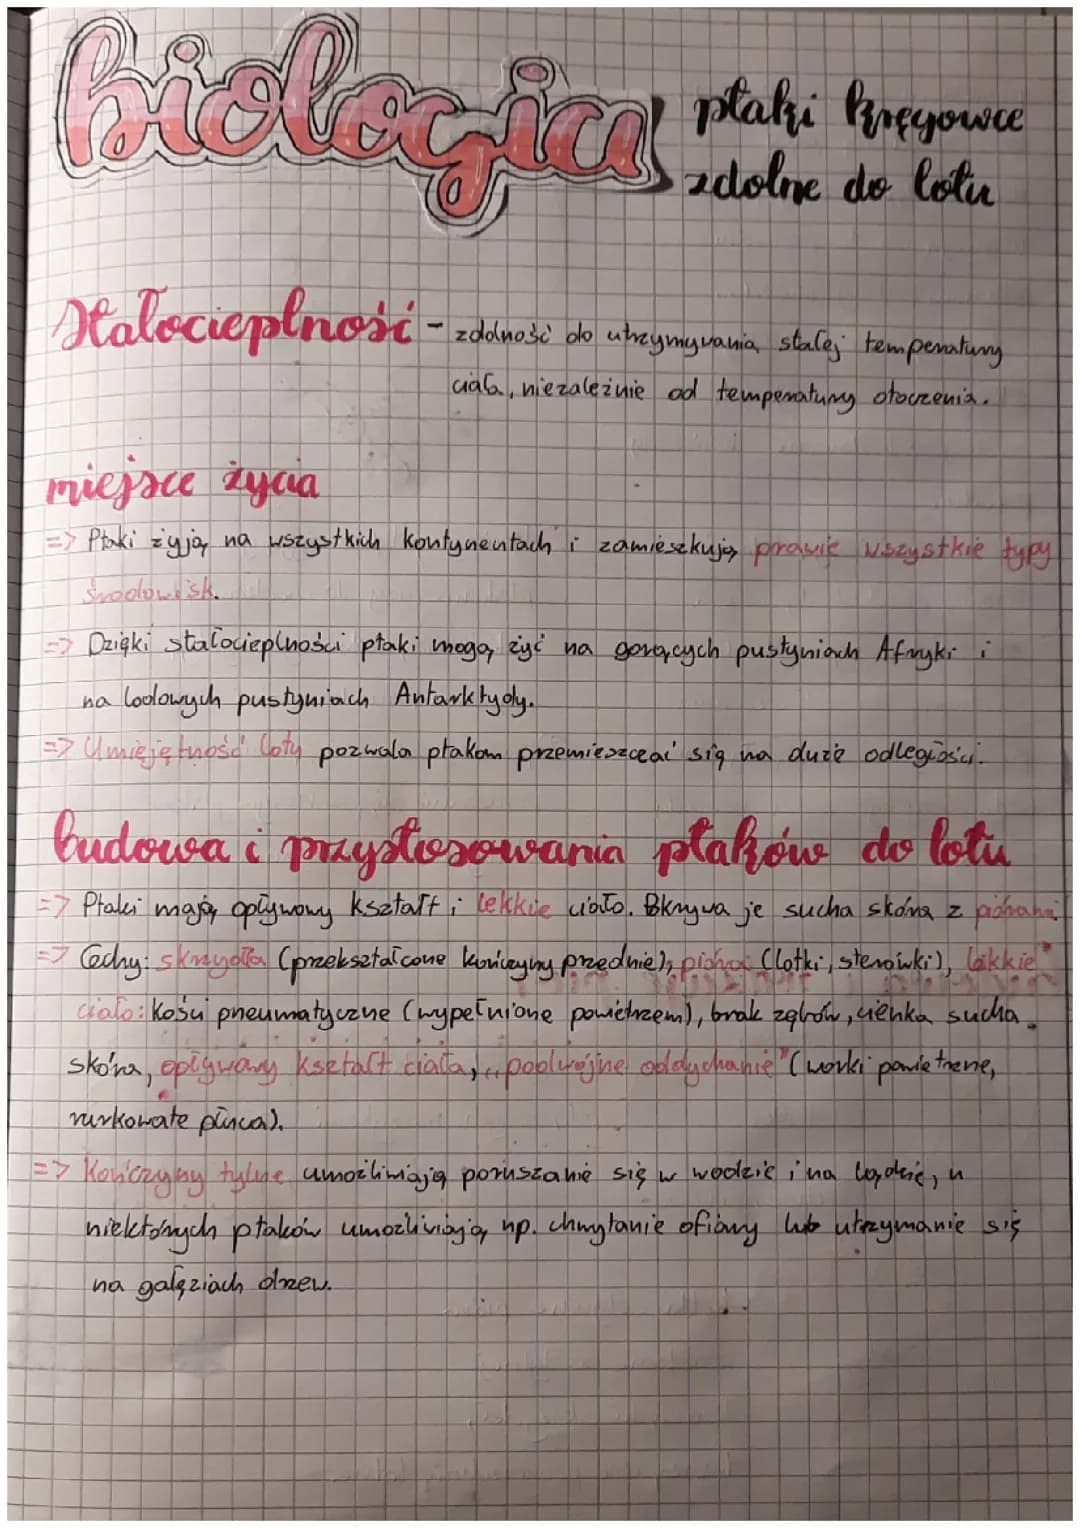 biologia
ptaki kręgowce
zdolne do lotu
Stałocieplność - zdolność do utrzymywania stałej temperatury
ciała, niezależnie od temperatury otoczenia.
miejsce życia
=> Ptaki żyją na wszystkich kontynentach i zamieszkują prawie wszystkie typy
środowisk.
=> Dzięki stałocieplności ptaki mogą żyć na gorących pustyniach Afryki i
na lodowych pustyniach Antarktydy.
=> Umiejętność lotu pozwala ptakom przemieszczać się na duże odległości.
budowa i przystosowania ptaków do lotu
=> Ptaki mają opływowy kształt i lekkie ciało. Okrywa je sucha skóra z piórami
=> Cechy: skrzydła (przekształcone kończyny przednie), pióra (lotki, sterówki), lekkie
ciało: kości pneumatyczne (wypełnione powietrzem), brak zębów, cienka sucha
skóra, opływowy kształt ciała, „podwójne oddychanie" (worki powietrzne,
rurkowate płuca).
=> Kończyny tylne umożliwiają poruszanie się w wodzie i na lądzie, u
niektórych ptaków umożliwiają np. chwytanie ofiary lub utrzymanie się
na gałęziach drzew.